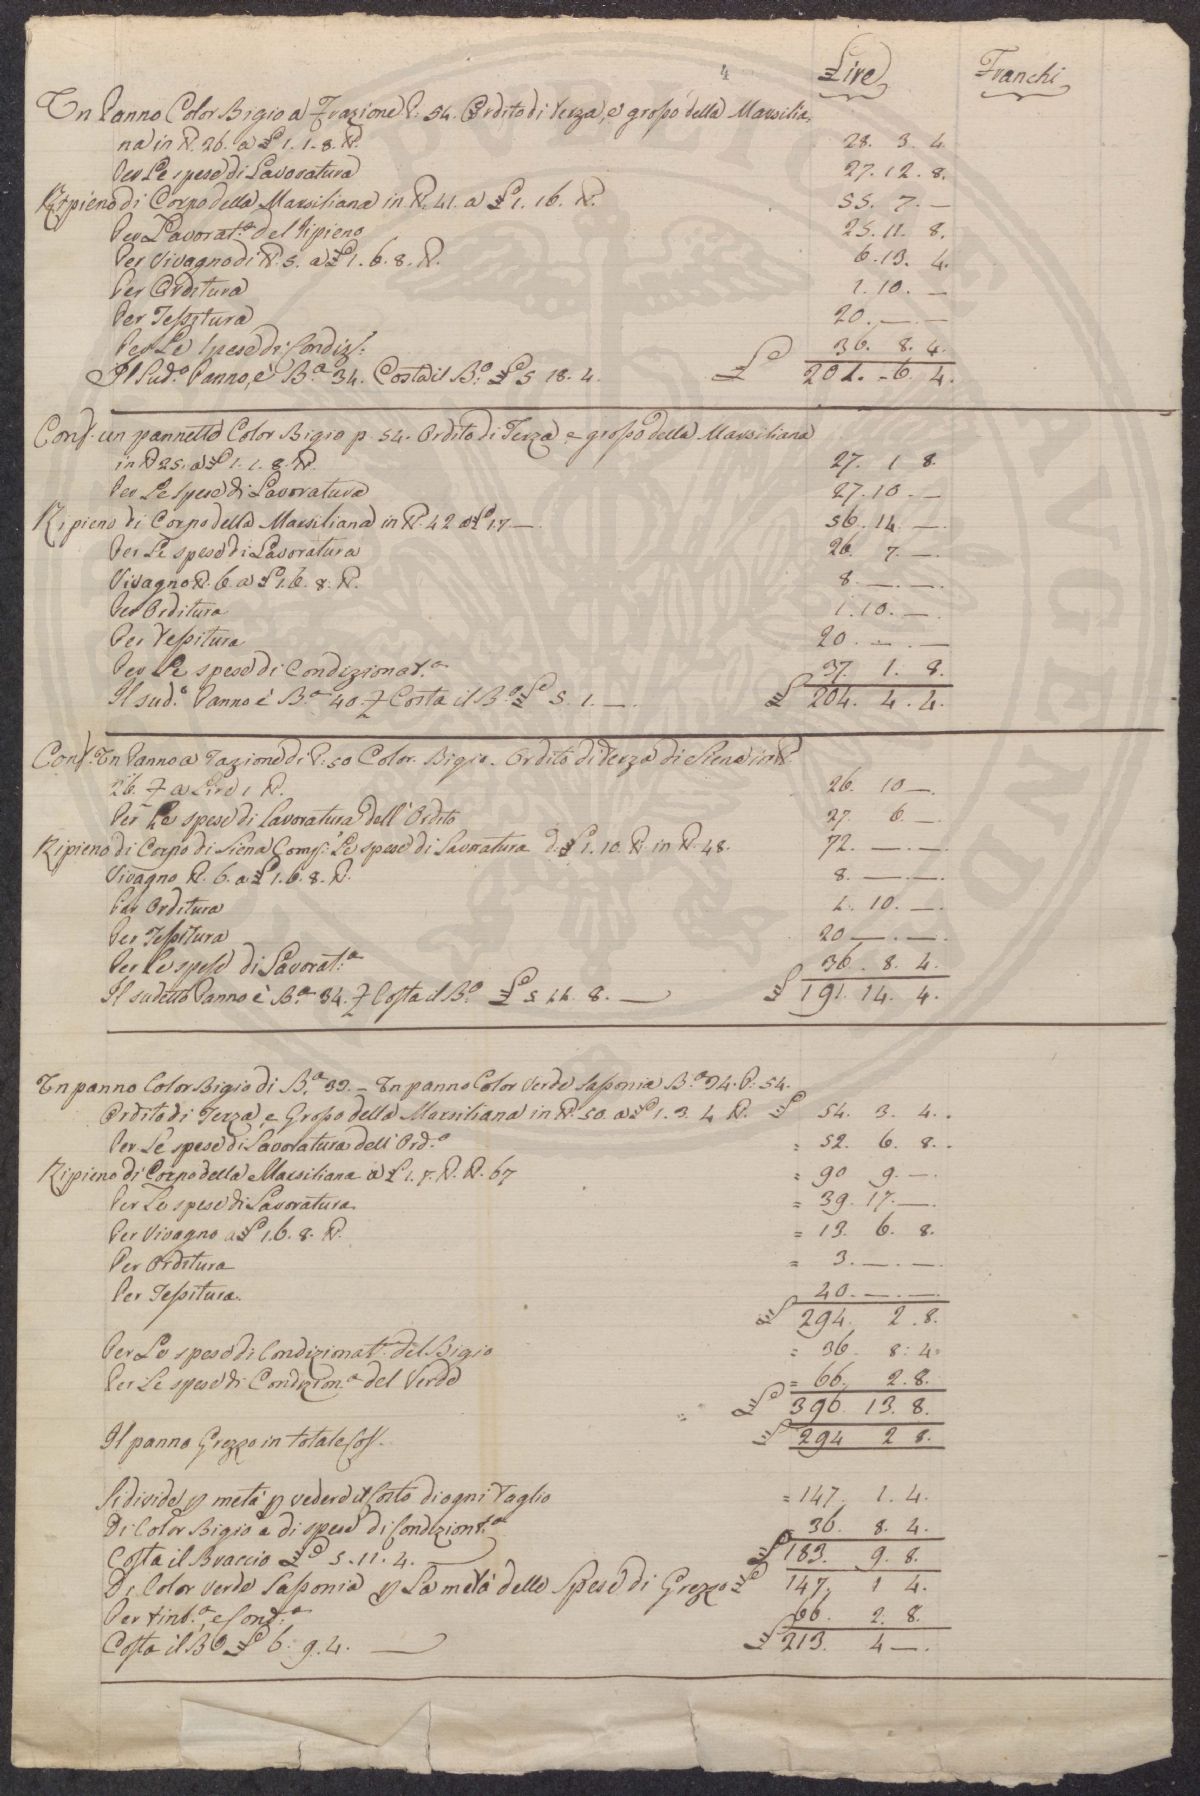 4
Lire Franchi
Un Panno Color Bigio a Frazione P. 54. Ordito di Terza, e grosso della Marsilia,
na in ℔. 26. a £ 1. 1. 8. ℔. 28. 3. 4.
Per Le spese di Lavoratura 27. 12. 8.
Ripieno di Corpo della Marsiliana in ℔. 41. a £ 1. 16. ℔. 55. 7. —
Per Lavorat.ª del ripieno 25. 11. 8.
Per Vivagno di ℔. 5. a £ 1. 6. 8. ℔. 6. 13. 4.
Per Orditura 1. 10. —
Per Tessitura 20. — —
Per Le spese di Condiz.: 36. 8. 4.
Il Sud.º Panno, è B.ª 34. Costa il B.º £ 5 18. 4. £ 201. - 6. 4.
Cons. un pannetto Color Bigio p. 54. Ordito di Terza e grosso della Marsiliana
in ℔ 25. a £ 1. 1. 8. ℔. 27. 1 8.
Per Le spese di Lavoratura 27. 10. —
Ripieno di Corpo della Marsiliana in ℔. 42 a £ 1.7 — 56. 14. —.
Per Le spese di Lavoratura 26. 7. —.
Vivagno ℔. 6. a £ 1. 6. 8. ℔. 8. —. —.
Per Orditura 1. 10. —.
Per Tessitura 20. — . —
Per Le spese di Condizionat.ª 37. 1. 8.
Il sud.º Panno è B.ª 40. Costa il B.º £ 5. 1. —. £ 204. 4. 4.
Cons. Un Panno a Tazione di P. 50 Color. Bigio. Ordito di Terza di Siena in ℔.
26. a Lire 1 ℔. 26. 10 —.
Per Le spese di Lavoratura dell' Ordito 27. 6. —.
Ripieno di Corpo di Siena Comp. Le spese di Lavoratura d. £ 1. 10. ℔. in ℔. 48. 72. —. —.
Vivagno ℔. 6. a £ 1. 6. 8. ℔. 8. —. —.
Per Orditura 1. 10. —.
Per Tessitura 20 —. —.
Per Le spese di Lavorat.ª 36. 8. 4.
Il sudetto Panno è B.ª 34. Costa il B.º £ 5 11. 8. — £ 191. 14. 4.
Un panno Color Bigio di B.ª 33. – Un panno Color Verde Sassonia B.ª 34. P. 54.
Ordito di Terza, e Grosso della Marsiliana in ℔. 50. a £ 1. 3. 4 ℔. £ 54. 3. 4.
Per Le spese di Lavoratura dell' Ord.º = 52. 6. 8.
Ripieno di Corpo della Marsiliana a £ 1. 7. ℔. ℔. 67 = 90 9. —.
Per Le spese di Lavoratura = 39. 17. —.
Per Vivagno a £ 1. 6. 8. ℔. = 13. 6. 8.
Per Orditura = 3. —. —.
Per Tessitura. 40. —. —.
£ 294. 2. 8.
Per Le spese di Condizionat.ª del Bigio = 36. 8. 4.
Per Le spese di Condizion.ª del Verde = 66. 2. 8.
= £ 396. 13. 8.
Il panno Grezzo in totale Cos. £ 294 2 8.
Si divide p metà p vedere il Costo di ogni Taglio = 147. 1. 4.
Di Color Bigio e di spese di Condizionat.ª 36. 8. 4.
Costa il Braccio £ 5. 11. 4. £ 183. 9. 8.
Di Color Verde Sassonia p La metà delle Spese di Grezzo £ 147. 1 4.
Per tint.ª e Cond.ª 66. 2. 8.
Costa il B.º £ 6. 9. 4. — £ 213. 4 —.